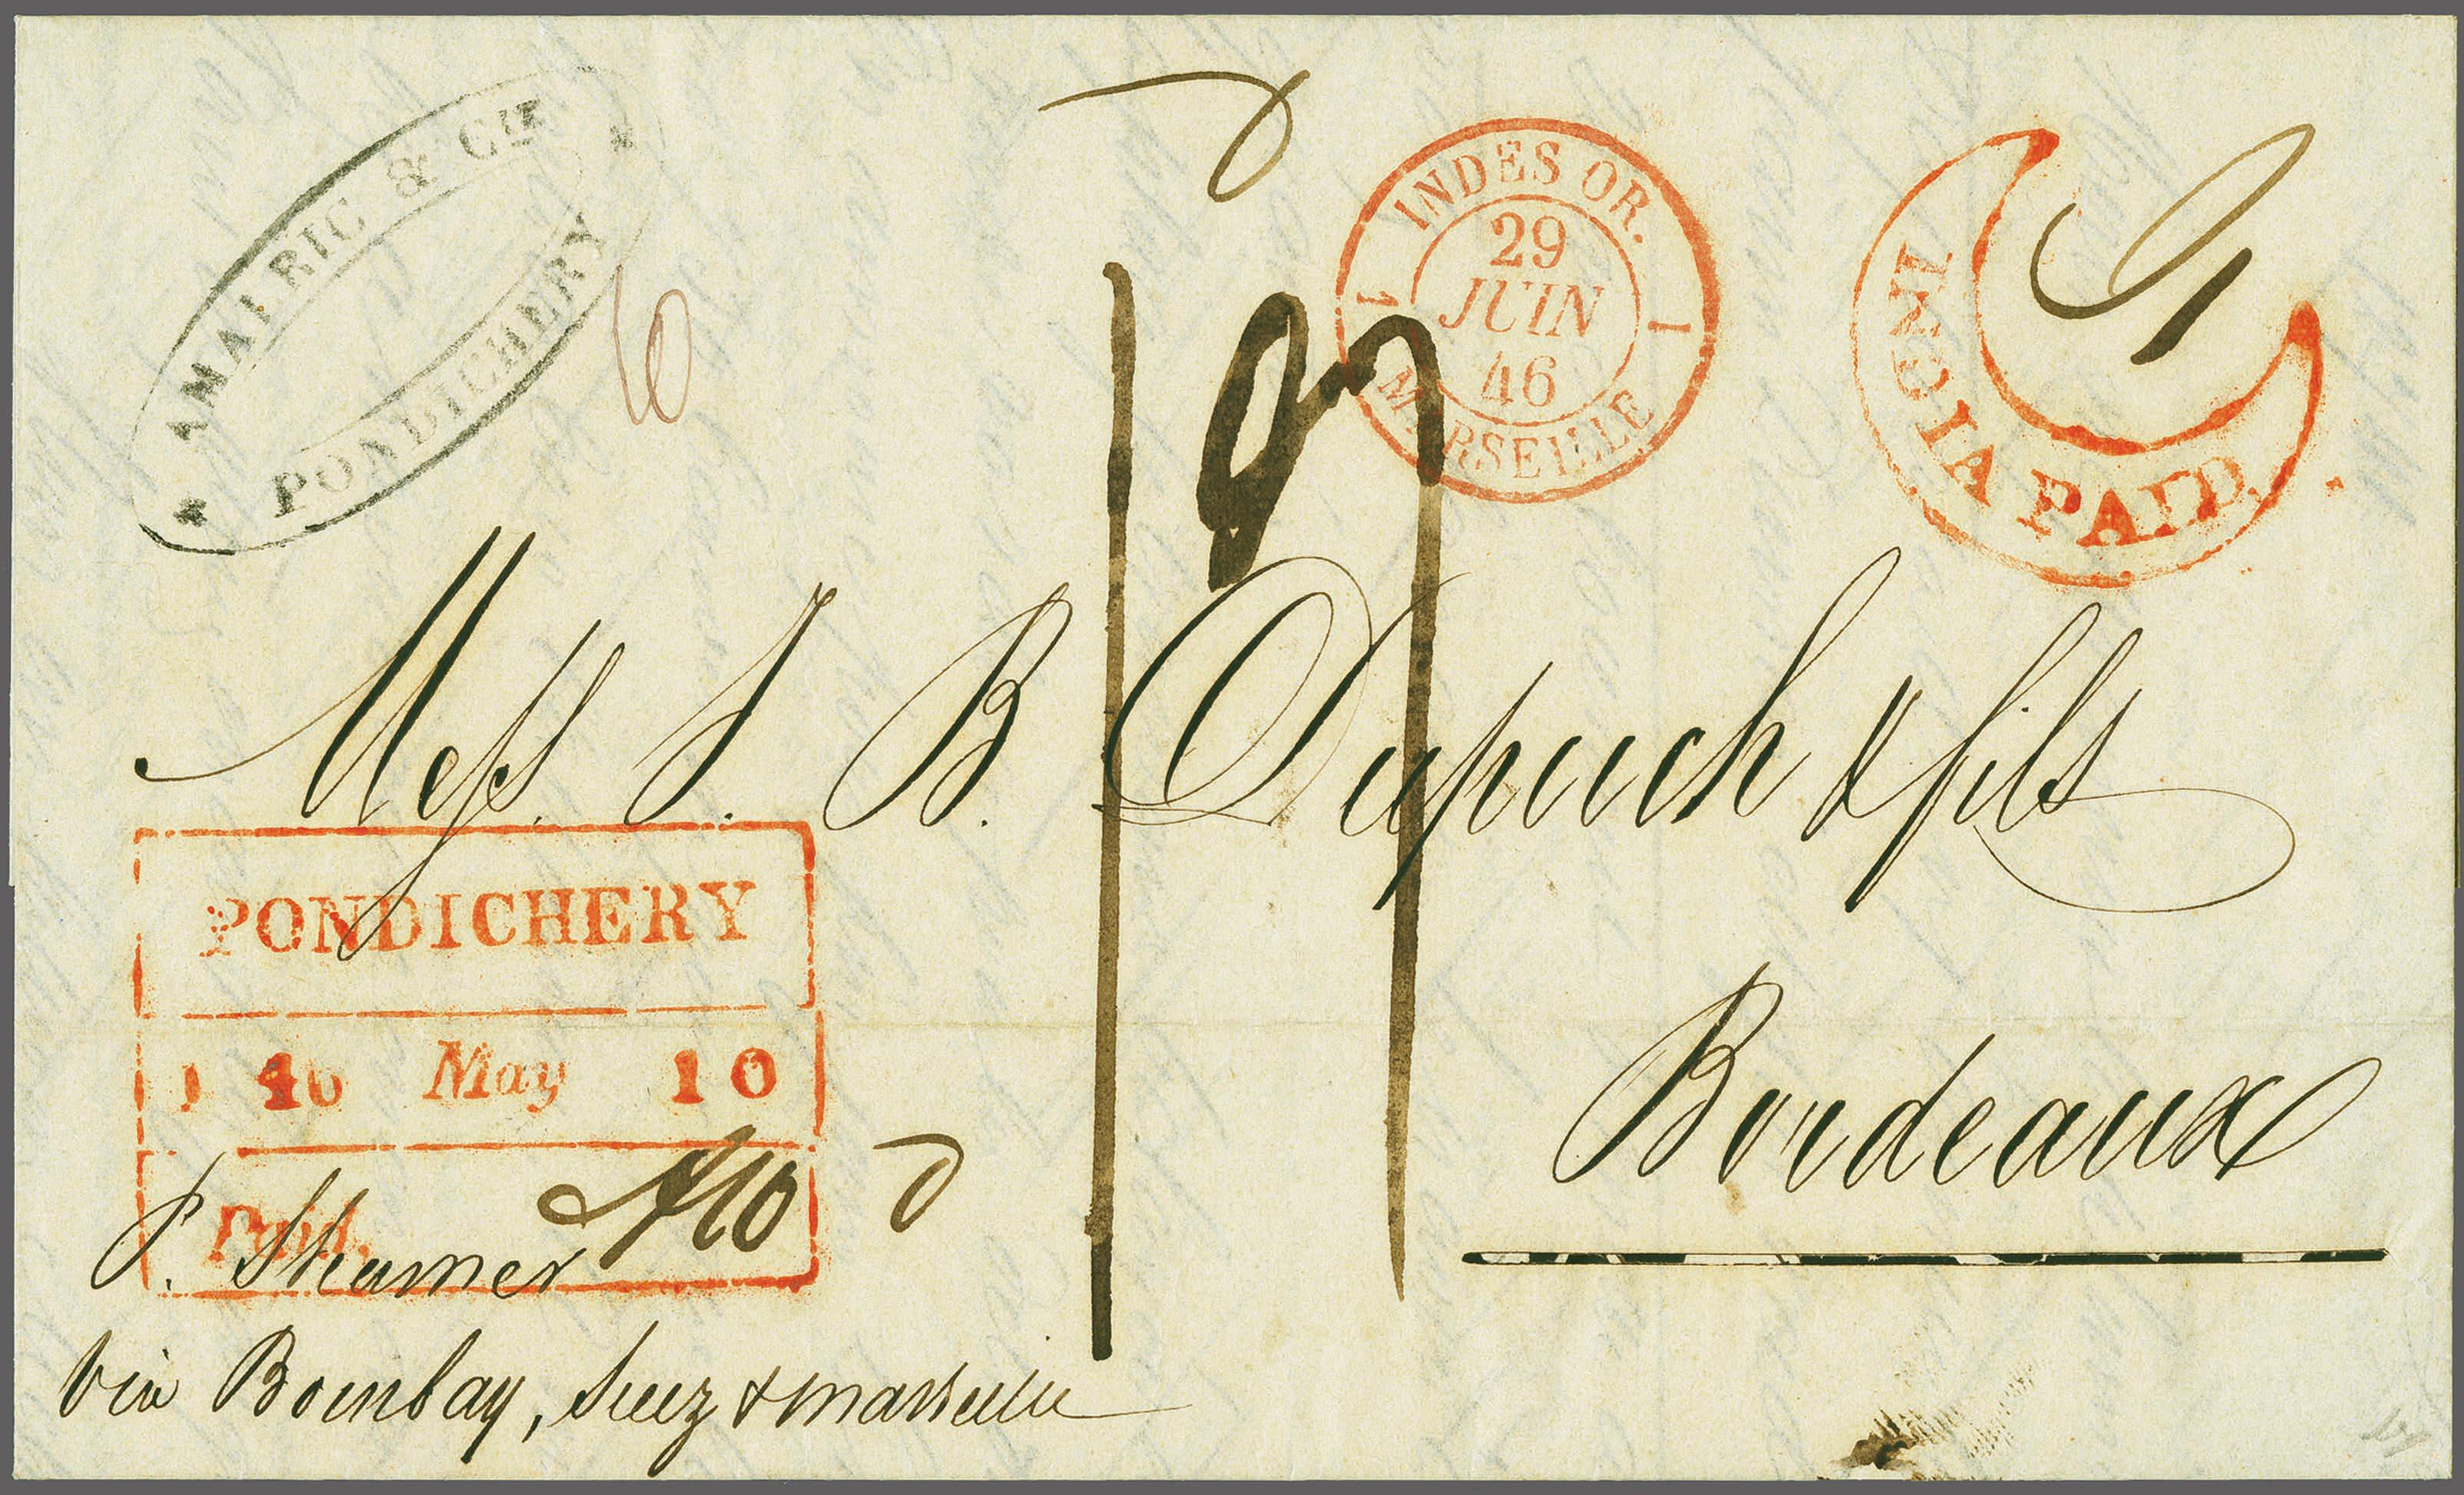 AMALRIC & CIE
PONDICHERY
INDES OR.
29
JUIN
46
MARSEILLE
1 1
INDIA PAID.
10
Mess. J. B. Dupuch & fils
Bordeaux
PONDICHERY
46 May 10
Paid.
P. Steamer
via Bombay, Suez & Marseille